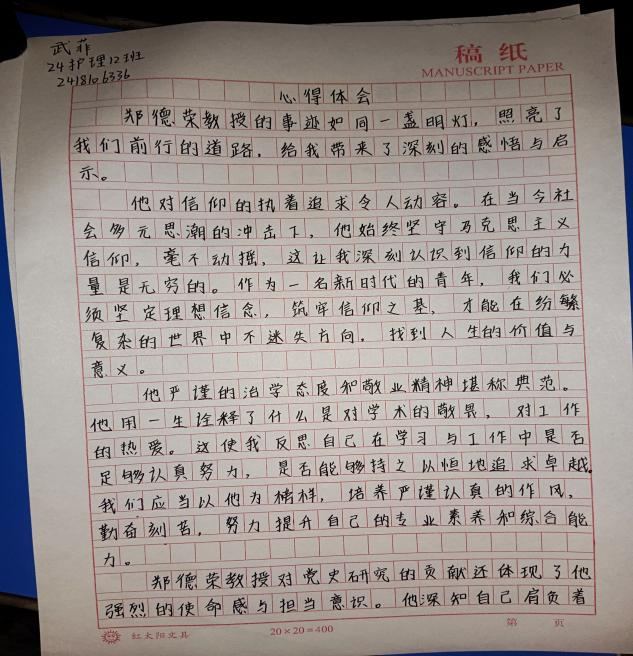 武菲
24护理12班
2418106336
稿纸
MANUSCRIPT PAPER
心得体会
郑德荣教授的事迹如同一盏明灯，照亮了
我们前行的道路，给我带来了深刻的感悟与启
示。
他对信仰的执着追求令人动容。在当今社
会多元思潮的冲击下，他始终坚守马克思主义
信仰，毫不动摇，这让我深刻认识到信仰的力
量是无穷的。作为一名新时代的青年，我们必
须坚定理想信念，筑牢信仰之基，才能在纷繁
复杂的世界中不迷失方向，找到人生的价值与
意义。
他严谨的治学态度和敬业精神堪称典范。
他用一生诠释了什么是对学术的敬畏，对工作
的热爱。这使我反思自己在学习与工作中是否
足够认真努力，是否能够持之以恒地追求卓越。
我们应当以他为榜样，培养严谨认真的作风，
勤奋刻苦，努力提升自己的专业素养和综合能
力。
郑德荣教授对党史研究的贡献还体现了他
强烈的使命感与担当意识。他深知自己肩负着
红太阳文具
20×20=400
第 页